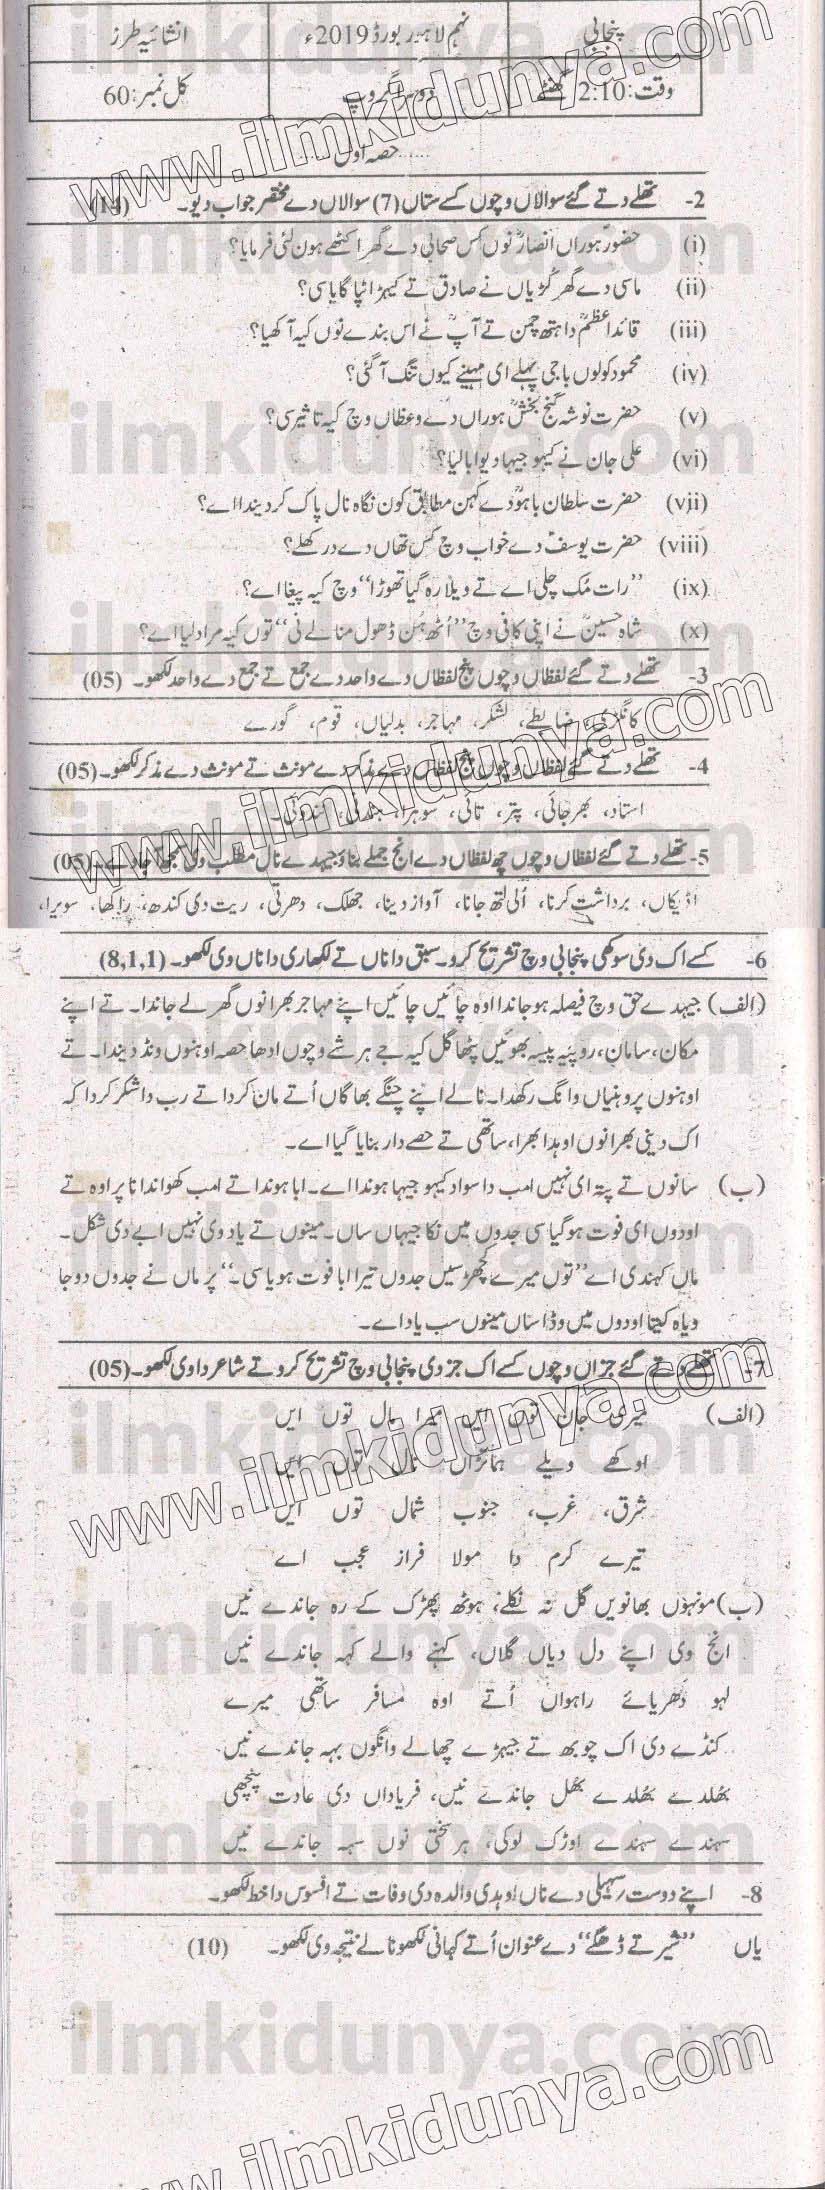 پنجابی نہم لاہور بورڈ 2019ء انشائیہ طرز
وقت: 2:10 گھنٹے دوسرا گروپ کل نمبر: 60
.....حصہ اول.....
2- تھلے دتے گئے سوالاں وچوں کسے ستاں (7) سوالاں دے مختصر جواب دیو۔ (14)
(i) حضورؐ ہوراں انصارؓ نوں کس صحابی دے گھر اکٹھے ہون لئی فرمایا؟
(ii) ماسی دے گھر کڑیاں نے صادق تے کیہڑا ٹپا گایا سی؟
(iii) قائداعظمؒ دا ہتھ چمن تے آپؒ نے اس بندے نوں کیہ آکھیا؟
(iv) محمود کولوں باجی پہلے ای مہینے کیوں تنگ آ گئی؟
(v) حضرت نوشہ گنج بخشؒ ہوراں دے وعظاں وچ کیہ تاثیر سی؟
(vi) علی جان نے کیہو جیہا دیوا بالیا؟
(vii) حضرت سلطان باہوؒ دے کہن مطابق کون نگاہ نال پاک کر دیندا اے؟
(viii) حضرت یوسفؑ دے خواب وچ کس تھاں دے در کھلے؟
(ix) ’’رات مک چلی اے تے ویلا رہ گیا تھوڑا‘‘ وچ کیہ پیغا اے؟
(x) شاہ حسینؒ نے اپنی کافی وچ ’’اُٹھ ہُن ڈھول منا لے نی‘‘ توں کیہ مراد لیا اے؟
3- تھلے دتے گئے لفظاں وچوں پنج لفظاں دے واحد دے جمع تے جمع دے واحد لکھو۔ (05)
ضابطے، لشکر، مہاجر، بدلیاں، قوم، گورے
4- تھلے دتے گئے لفظاں وچوں پنج لفظاں دے مذکر دے مونث تے مونث دے مذکر لکھو۔ (05)
استاد، بھرجائی، پتر، تائی، سوہرا،
5- تھلے دتے گئے لفظاں وچوں چھ لفظاں دے انج جملے بناؤ جیہدے نال مطلب وی سمجھ آ جاوے۔ (05)
اڈیکاں، برداشت کرنا، اُلی لتھ جانا، آواز دینا، جھلک، دھرتی، ریت دی کندھ، راکھا، سویرا،
6- کسے اک دی سوکھی پنجابی وچ تشریح کرو۔ سبق دا ناں تے لکھاری دا ناں وی لکھو۔ (8,1,1)
(الف) جیہدے حق وچ فیصلہ ہو جاندا اوہ چائیں چائیں اپنے مہاجر بھرا نوں گھر لے جاندا۔ تے اپنے
مکان، سامان، روپیہ پیسہ بھوئیں پٹھا گل کیہ جے ہر شے وچوں ادھا حصہ اوہنوں ونڈ دیندا۔ تے
اوہنوں پروہنیاں وانگ رکھدا۔ نالے اپنے چنگے بھاگاں اُتے مان کردا تے رب دا شکر کردا کہ
اک دینی بھرا نوں اوہدا بھرا، ساتھی تے حصے دار بنایا گیا اے۔
(ب) سانوں تے پتہ ای نہیں امب دا سواد کیہو جیہا ہوندا اے۔ ابا ہوندا تے امب کھواندا نا پر اوہ تے
اودوں ای فوت ہو گیا سی جدوں میں نکا جیہاں ساں۔ مینوں تے یاد وی نہیں ابے دی شکل۔
ماں کہندی اے ’’توں میرے کچھڑ سیں جدوں تیرا ابا فوت ہویا سی۔‘‘ پر ماں نے جدوں دوجا
ویاہ کیتا اودوں میں وڈا ساں مینوں سب یاد اے۔
7- تھلے دتے گئے جزاں وچوں کسے اک جز دی پنجابی وچ تشریح کرو تے شاعر دا وی لکھو۔ (05)
(الف) میری جان توں ایں میرا مال توں ایں
اوکھے ویلے ہماتڑاں نال توں ایں
شرق، غرب، جنوب شمال توں ایں
تیرے کرم دا مولا فراز عجب اے
(ب) مونہوں بھانویں گل نہ نکلے، ہوٹھ پھڑک کے رہ جاندے نیں
انج وی اپنے دل دیاں گلاں، کہنے والے کہہ جاندے نیں
لہو دَھریائے راہواں اُتے اوہ مسافر ساتھی میرے
کنڈے دی اک چوبھ تے جیہڑے چھالے وانگوں بہہ جاندے نیں
بھلدے بھلدے بھل جاندے نیں، فریاداں دی عادت پنچھی
سہندے سہندے اوڑک لوکی، ہر سختی نوں سہہ جاندے نیں
8- اپنے دوست/سہیلی دے ناں اوہدی والدہ دی وفات تے افسوس دا خط لکھو۔
یاں ’’شیر تے ڈھگے‘‘ دے عنوان اُتے کہانی لکھو نالے نتیجہ وی لکھو۔ (10)
www.ilmkidunya.com